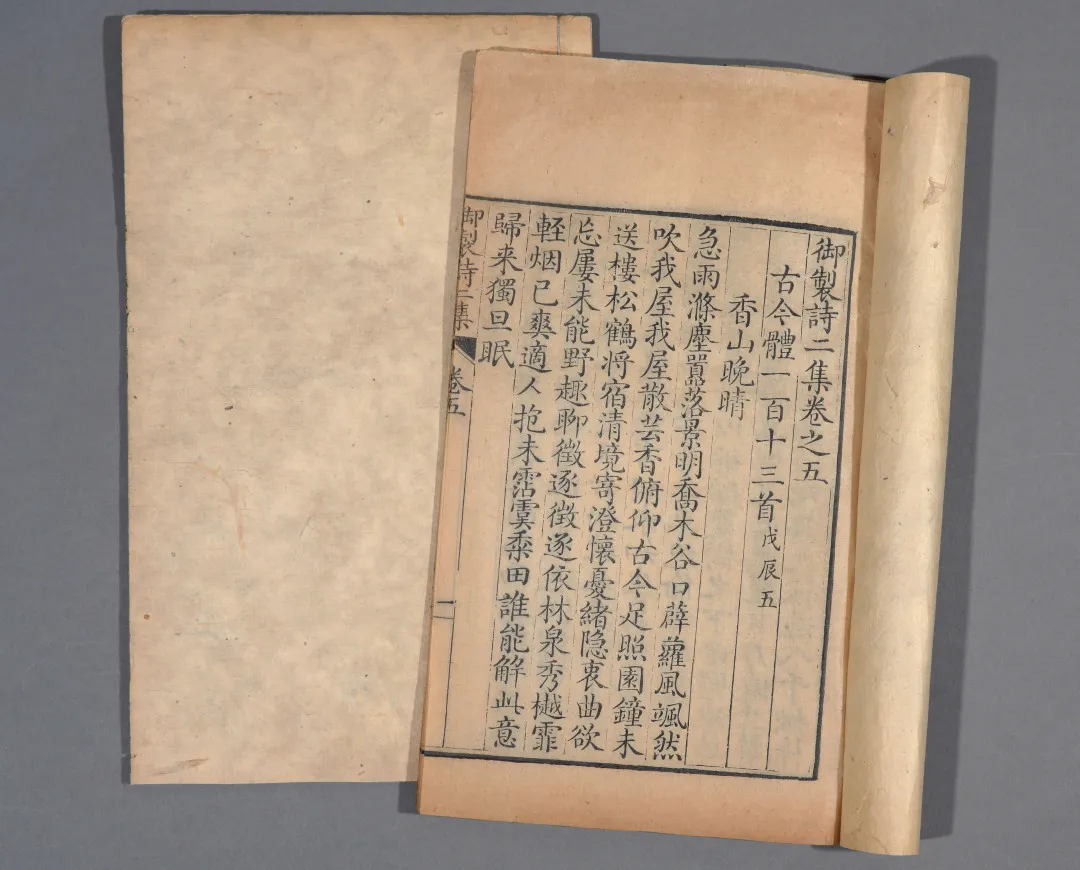 御製詩二集卷之五
古今體一百十三首戊辰五
香山晚晴
急雨滌塵囂落景明喬木谷口薜蘿風颯然
吹我屋我屋散芸香俯仰古今足照園鐘未
送樓松鶴將宿清境寄澄懷憂緒隐衷曲欲
忘屢未能野趣聊徵逐徵逐依林泉秀樾霏
輊烟已爽適人抱未霑霙黍田誰能解此意
歸来獨旦眠
御製詩二集
卷五
一